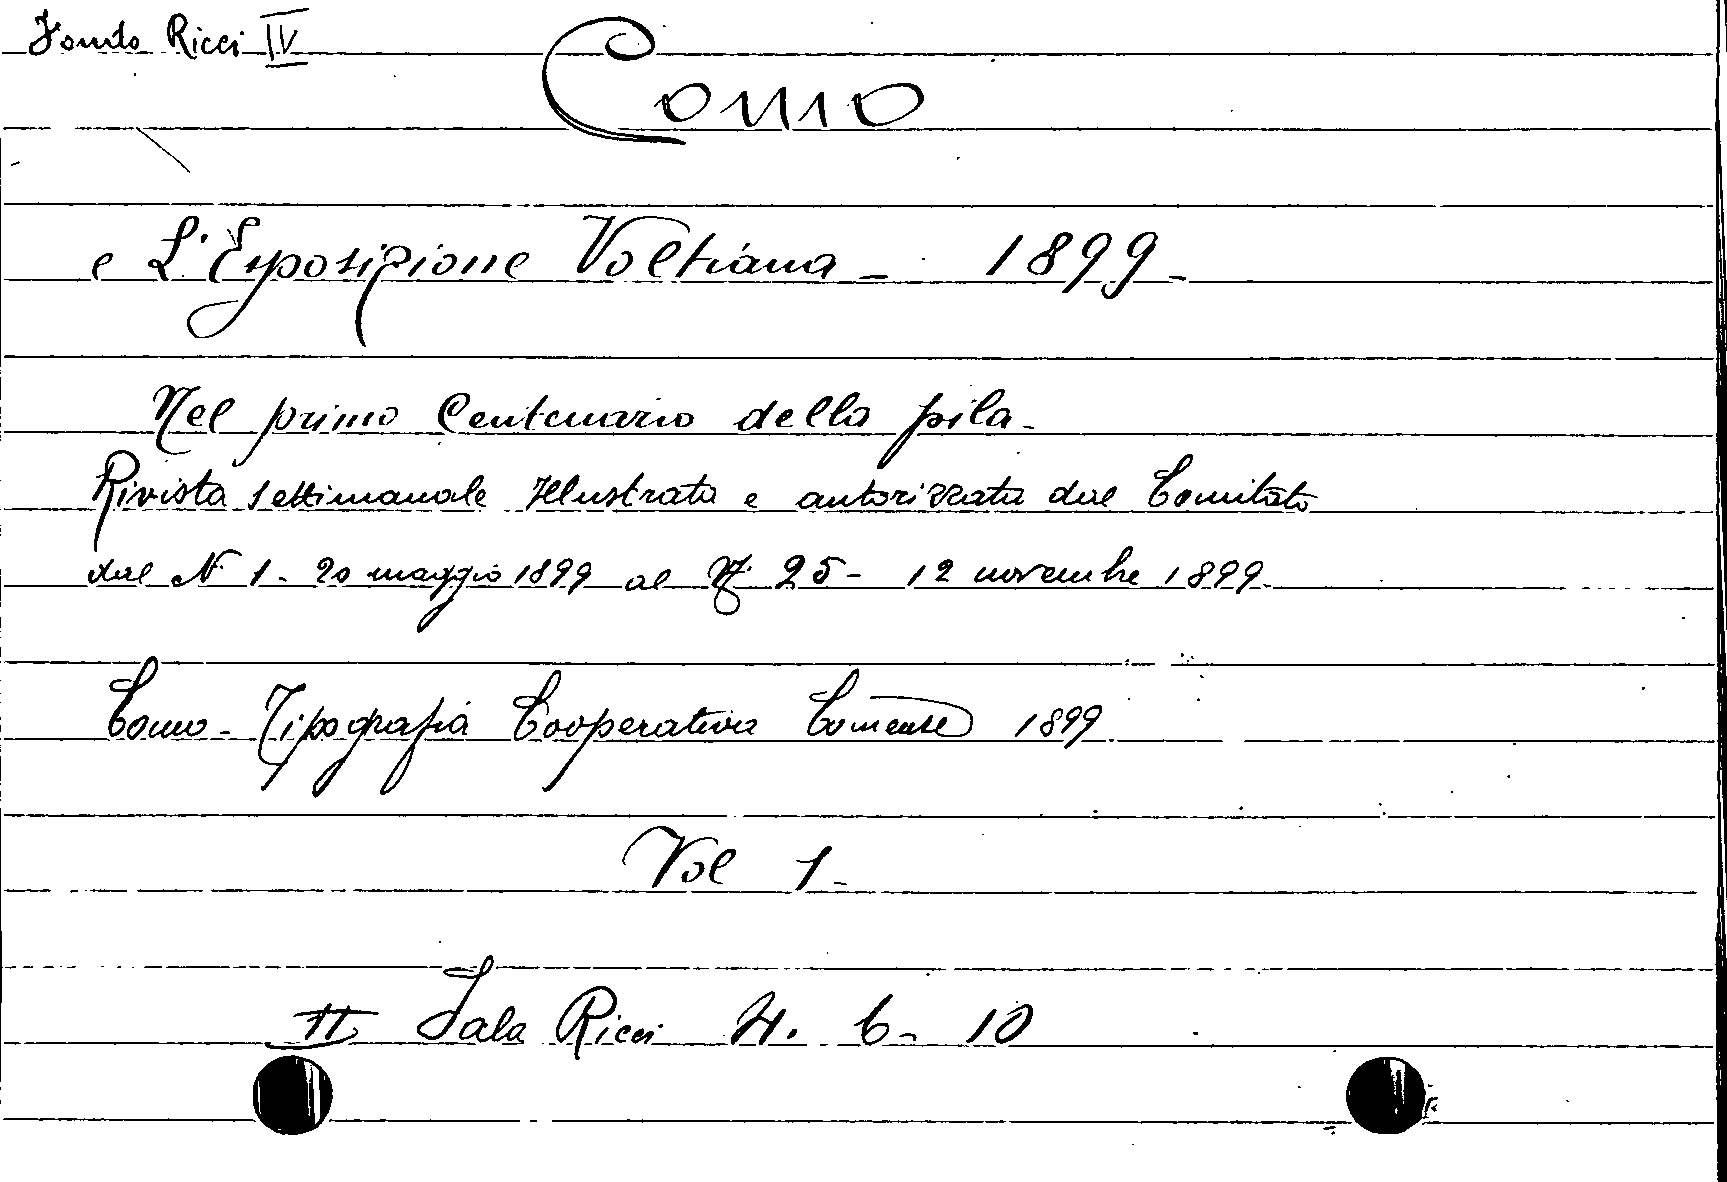 Fondo Ricci IV
Como
e L'Esposizione Voltiana - 1899 -
Nel primo Centenario della pila -
Rivista settimanale Illustrata e autorizzata dal Comitato
dal N. 1 - 20 maggio 1899 al N. 25 - 12 novembre 1899 -
Como - Tipografia Cooperativa Comense 1899
Vol 1 -
II Sala Ricci H. 6 - 10